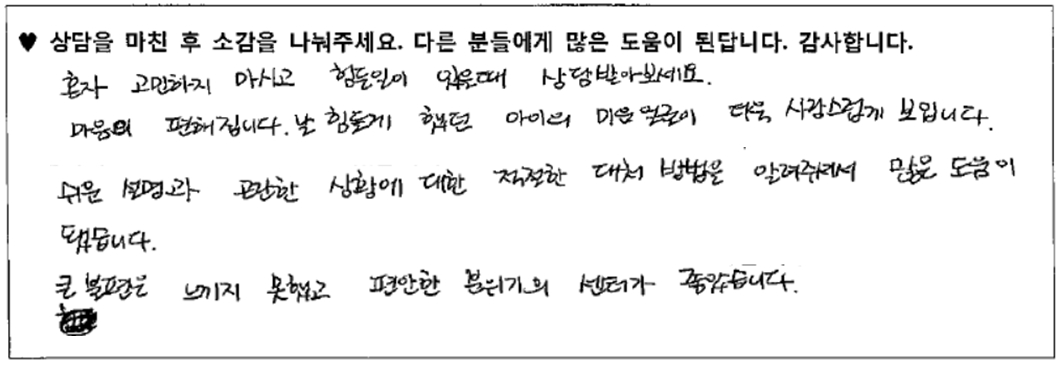 ♥ 상담을 마친 후 소감을 나눠주세요. 다른 분들에게 많은 도움이 된답니다. 감사합니다.
혼자 고민하지 마시고 힘든일이 있을때 상담받아보세요.
마음의 편해집니다. 날 힘들게 했던 아이의 미운 얼굴이 더욱 사랑스럽게 보입니다.
쉬운 설명과 곤란한 상황에 대한 적절한 대처 방법을 알려주셔서 많은 도움이
됐습니다.
큰 불편은 느끼지 못했고 편안한 분위기의 센터가 좋았습니다.